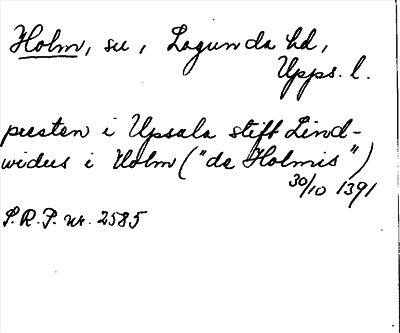 Holm, su, Lagunda hd,
Upps. l.
presten i Upsala stift Lind-
widus i Holm ("de Holmis")
30/10 1391
S.R.P. nr. 2585